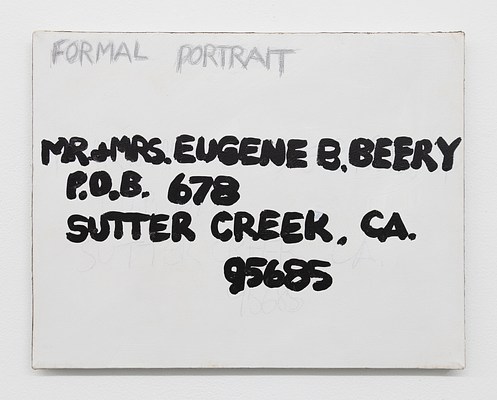 FORMAL PORTRAIT
MR.&MRS. EUGENE B. BEERY
P.O.B. 678
SUTTER CREEK, CA.
95685